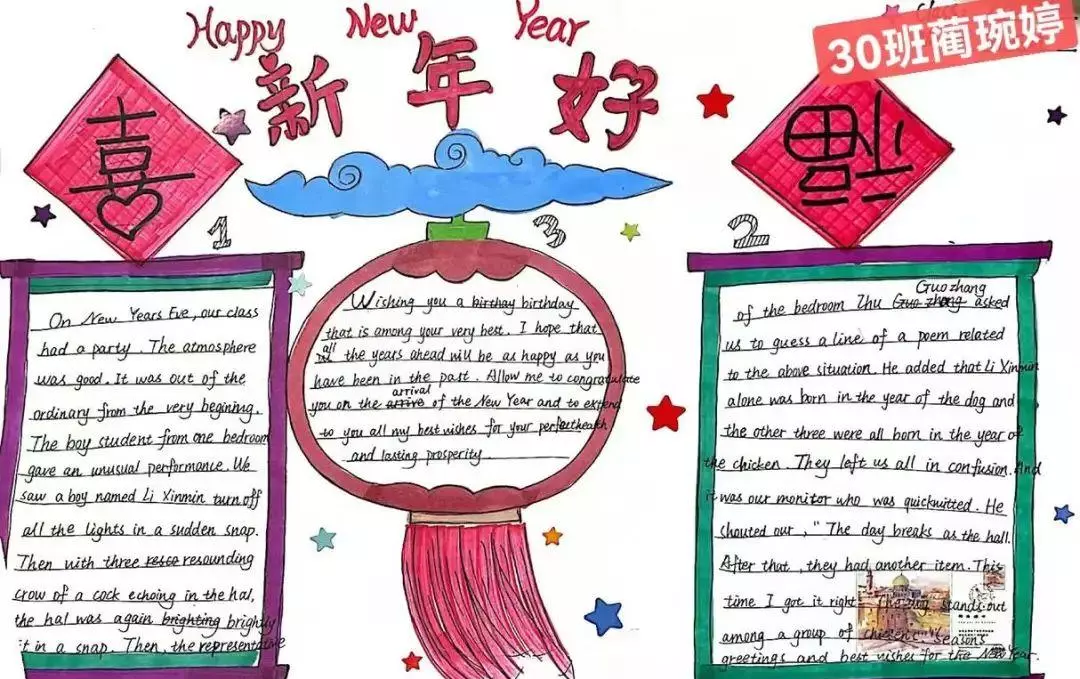 Happy New Year
新年好
30班蔺琬婷
喜
福
1
On New Years Eve, our class
had a party. The atmosphere
was good. It was out of the
ordinary from the very begining.
The boy student from one bedroom
gave an unusual performance. We
saw a boy named Li Xinmin turn off
all the lights in a sudden snap.
Then with three resco resounding
crow of a cock echoing in the hal,
the hal was again brighting brightly
it in a snap. Then, the representative
2
Guozhang
of the bedroom Zhu Guo zhang asked
us to guess a line of a poem related
to the above situation. He added that Li Xinmin
alone was born in the year of the dog and
the other three were all born in the year of
the chicken. They left us all in confusion. And
it was our monitor who was quickwitted. He
shouted our, " The day breaks as the hall.
After that, they had another item. This
time I got it right. The dog stands out
among a group of chickens. " Seasons
greetings and best wishes for the New Year.
3
Wishing you a birthay birthday
that is among your very best. I hope that
all
the years ahead will be as happy as you
have been in the past. Allow me to congratulate
arrival
you on the arrive of the New Year and to extend
to you all my best wishes for your perfect health
and lasting prosperity.